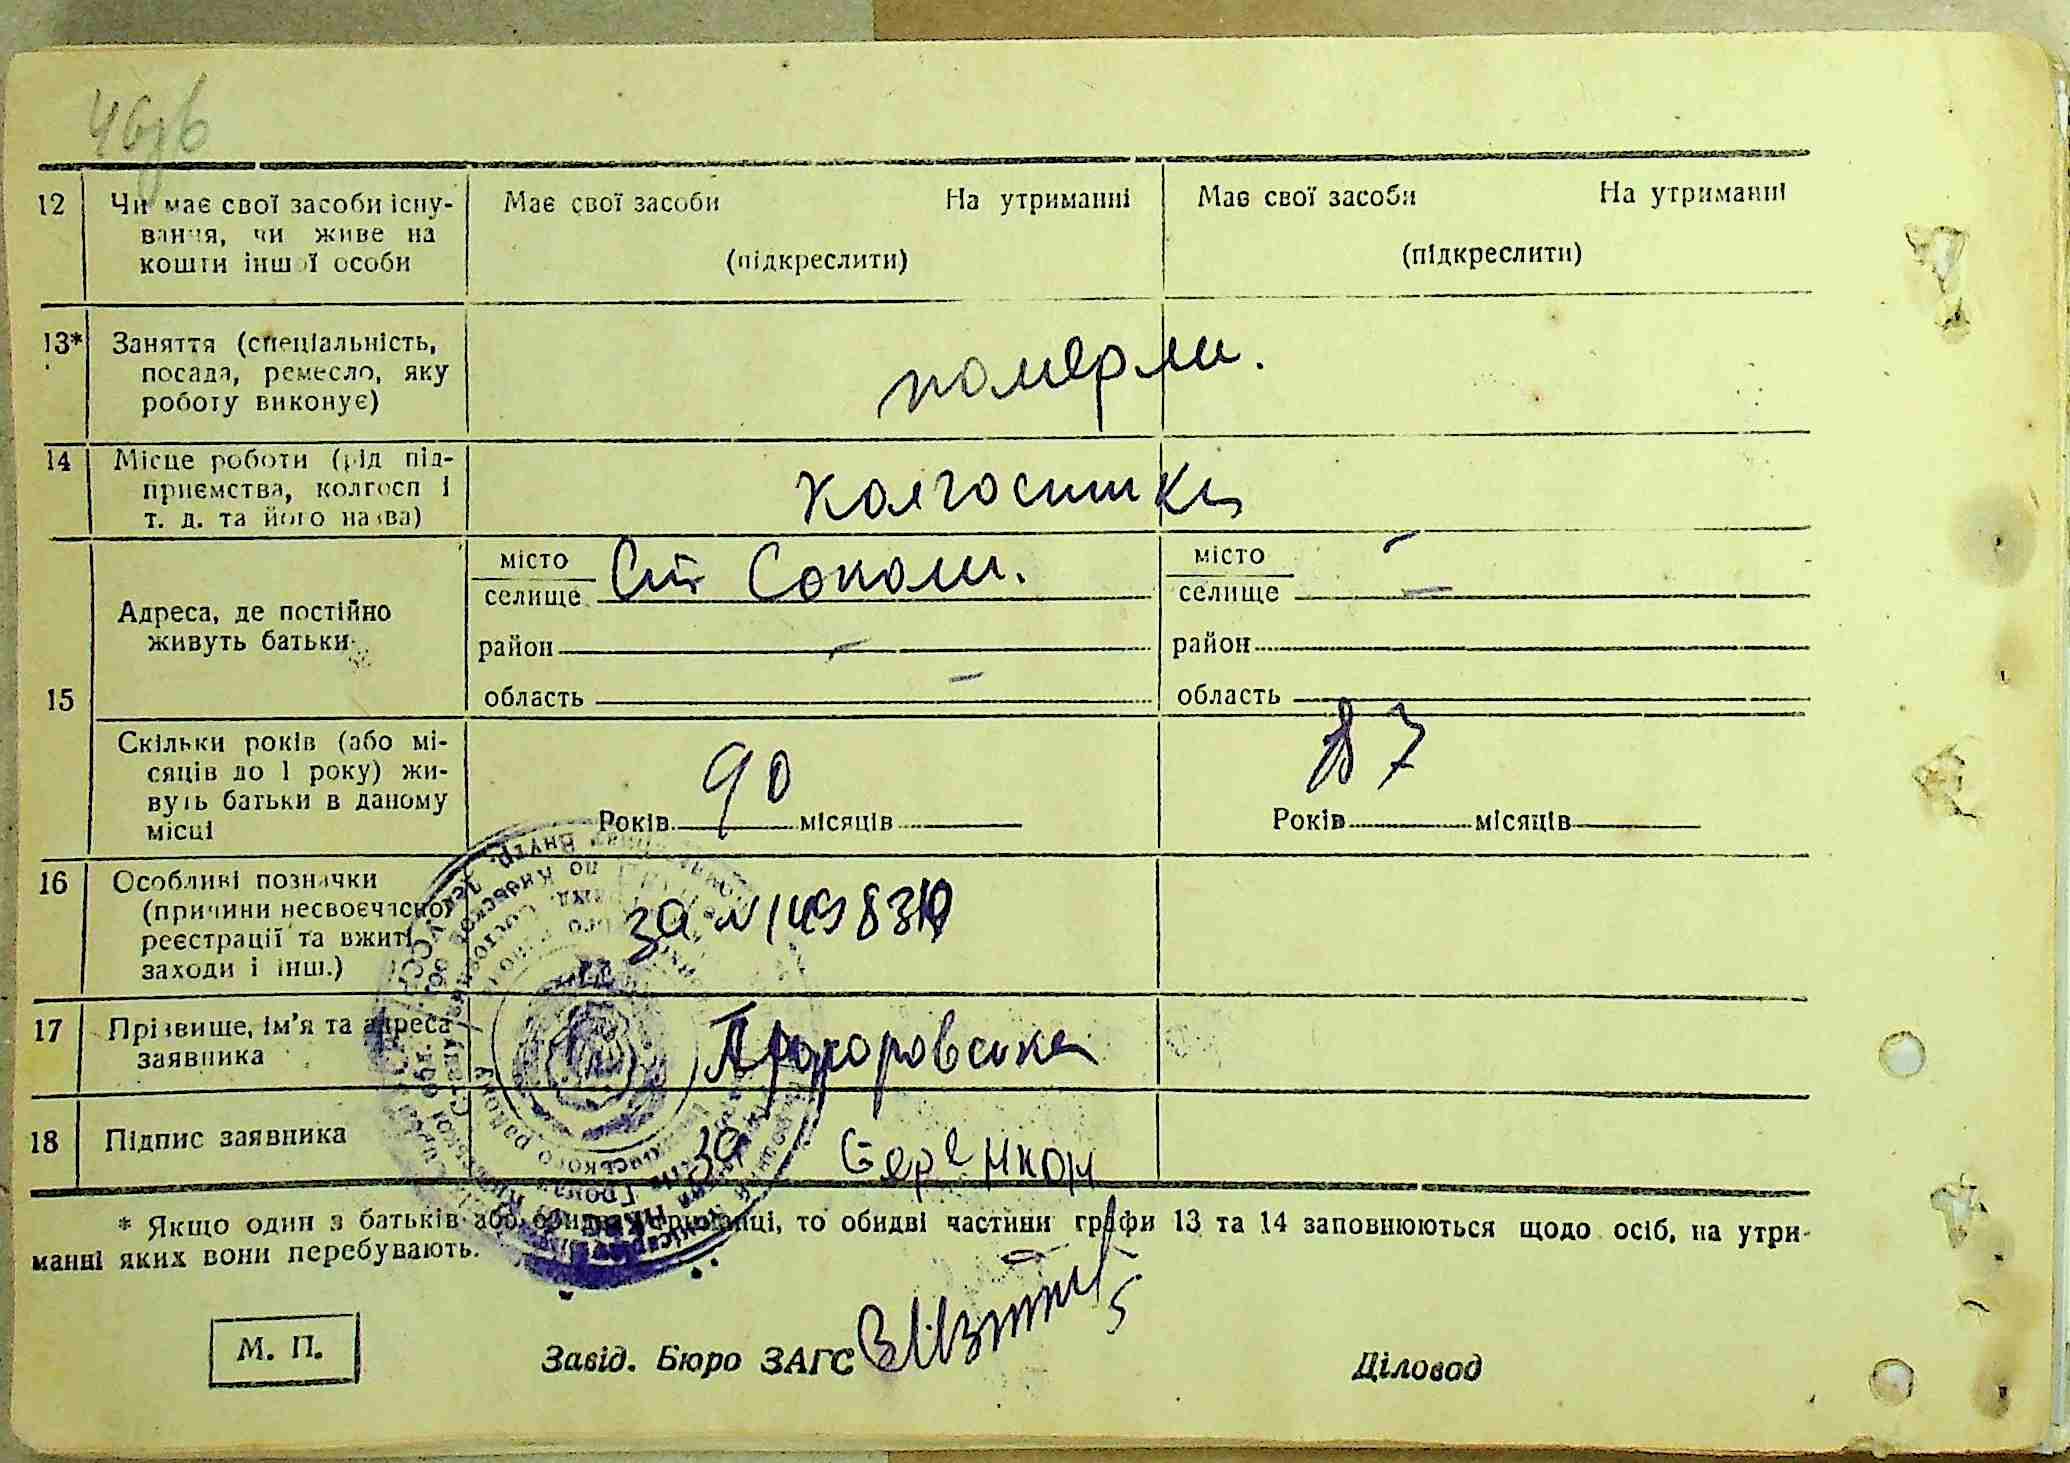 12 Чи має свої засоби існу- Має свої засоби На утриманні Має свої засоби На утриманні
вання, чи живе на
кошти іншої особи (підкреслити) (підкреслити)
13* Заняття (спеціальність,
посада, ремесло, яку померли.
роботу виконує)
14 Місце роботи (рід під-
приємства, колгосп і колгоспники
т. д. та його назва)
15 Адреса, де постійно
живуть батьки
місто Ст Соколи. місто –
селище селище –
район – район
область – область
Скільки років (або мі-
сяців до 1 року) жи-
вуть батьки в даному
місці
90 87
Років місяців Років місяців
16 Особливі позначки
(причини несвоєчасної
реєстрації та вжиті
заходи і інш.)
за №
17 Прізвище, ім'я та адреса
заявника Прохоровська
18 Підпис заявника за
* Якщо один з батьків або обидва утриманці, то обидві частини графи 13 та 14 заповнюються щодо осіб, на утри-
манні яких вони перебувають.
М. П. Завід. Бюро ЗАГС Діловод